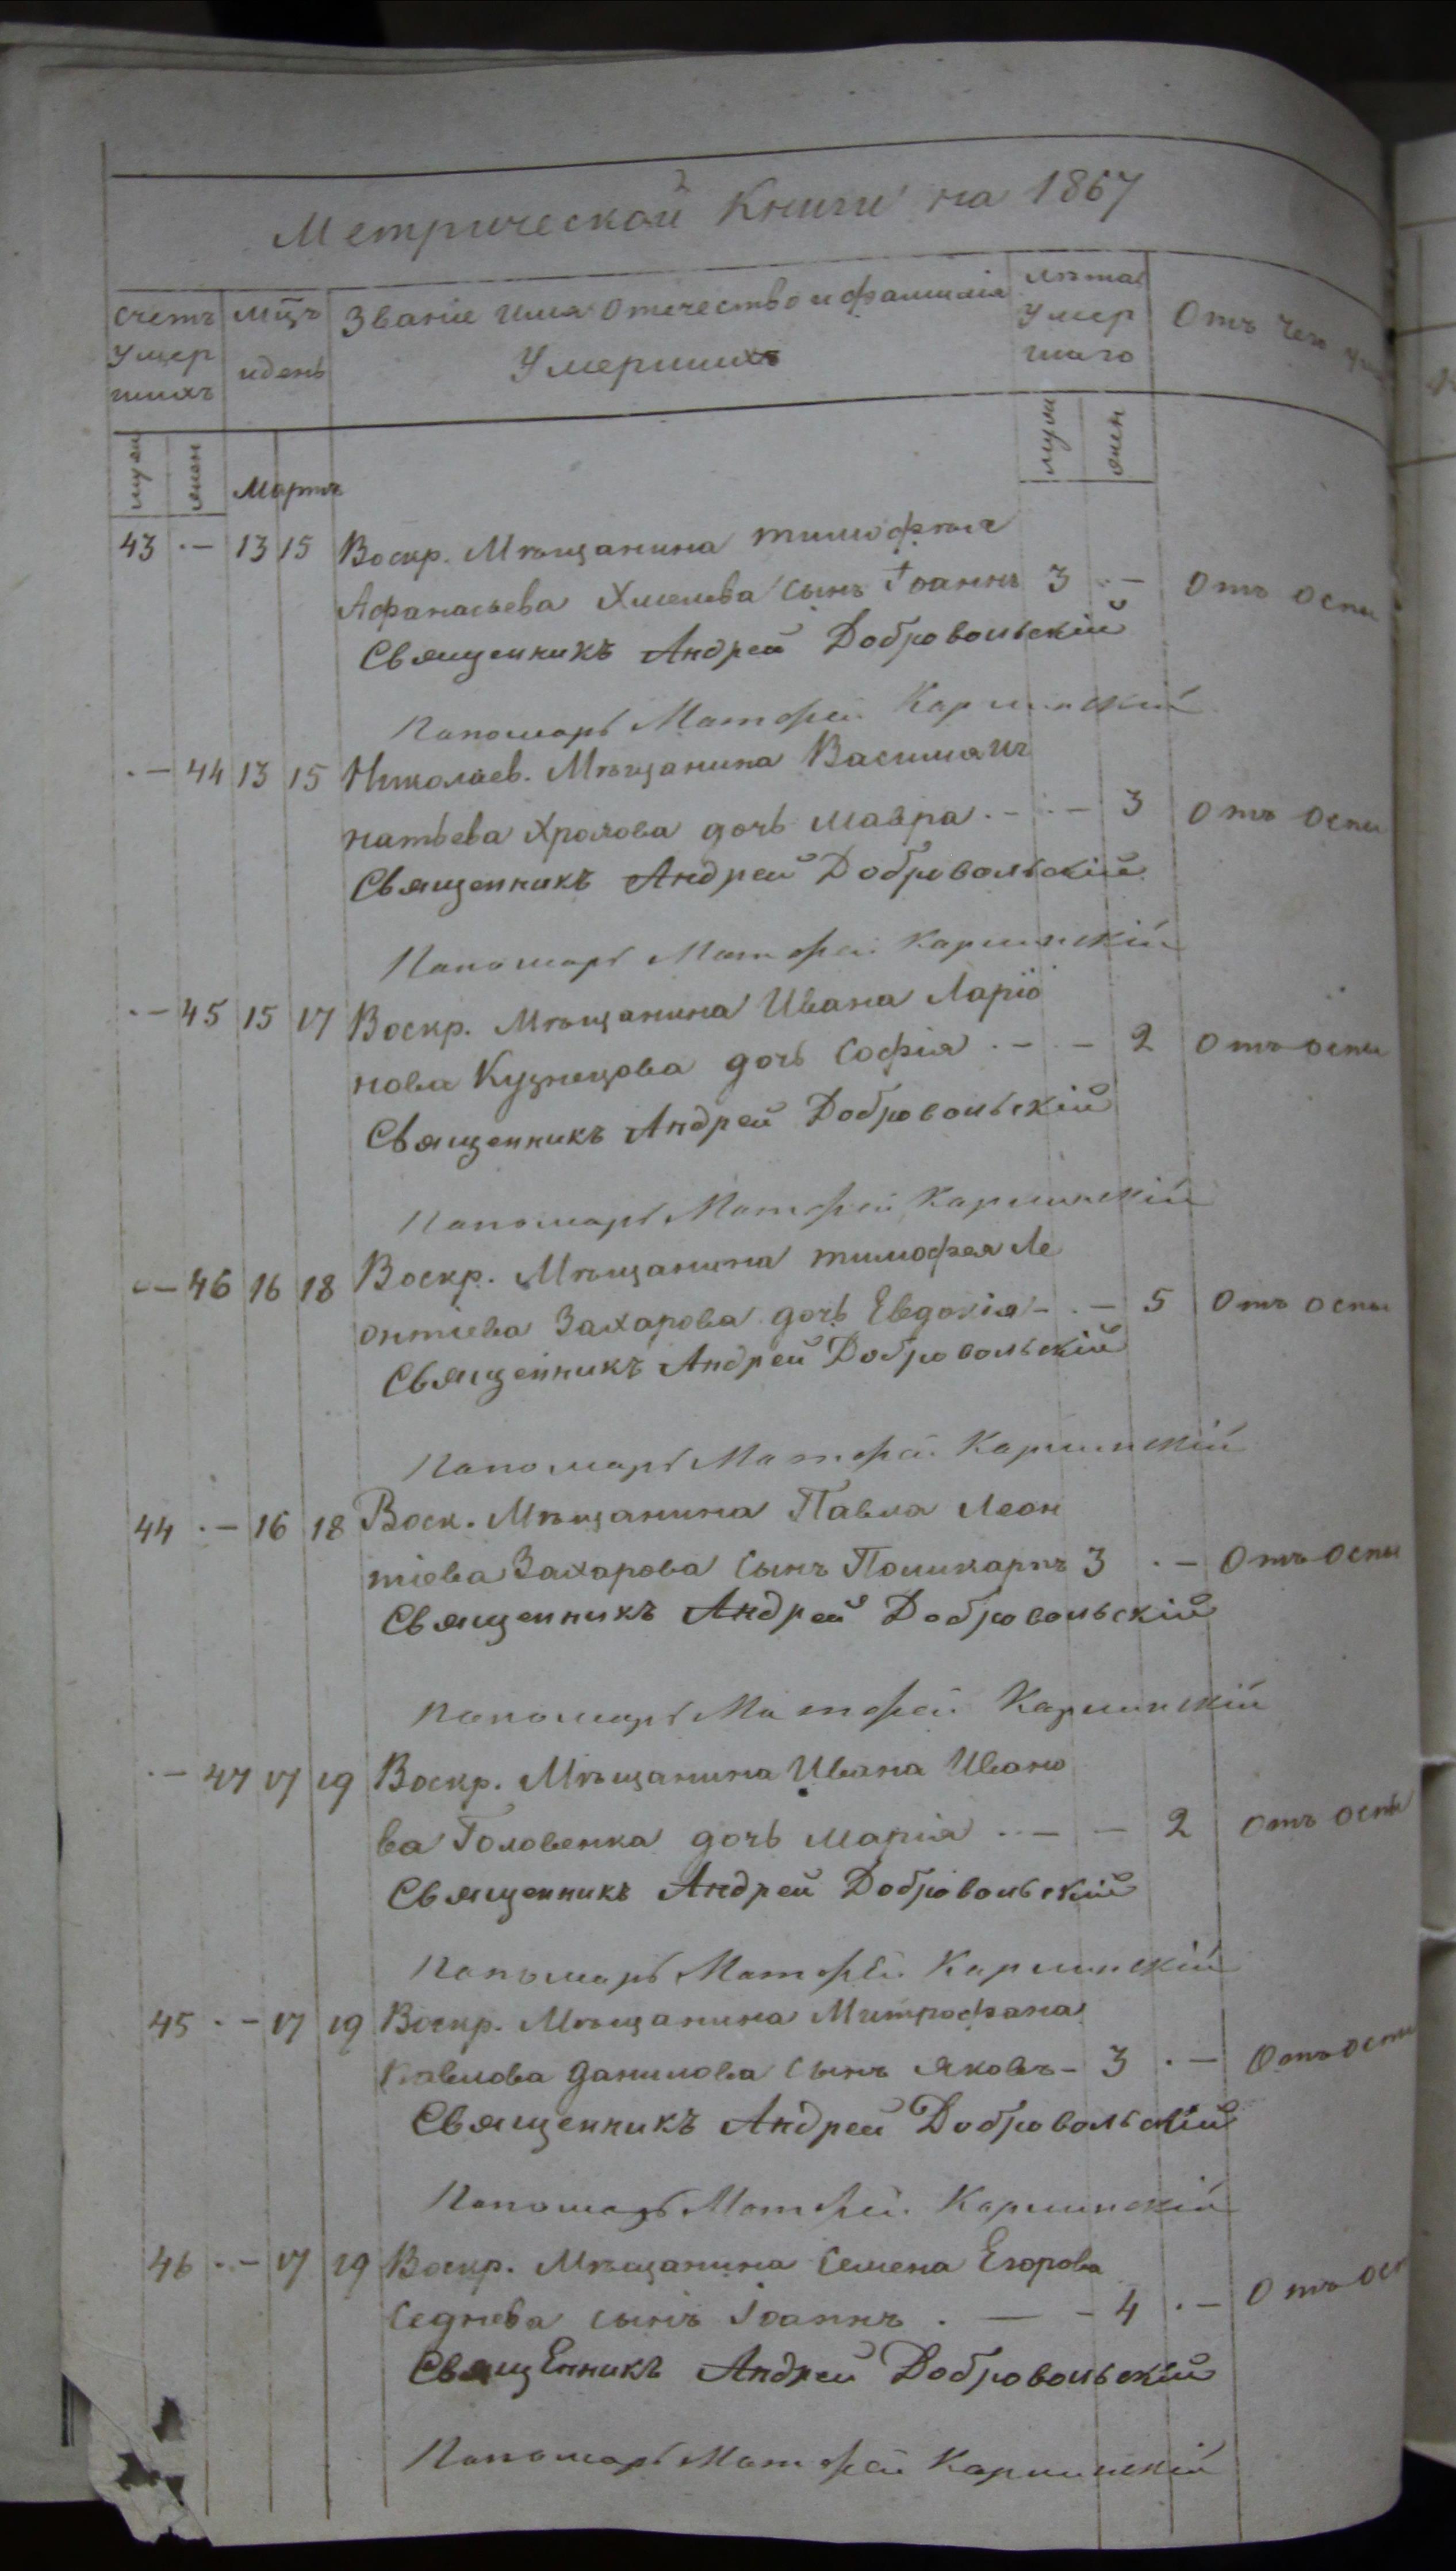 Метрической Книги на 1867
счетъ мцъ Званіе Имя Отечество и фамилія лѣта Отъ чего
Умер и день Умершихъ Умер
шихъ шаго
муж жен Мартъ муж жен
43 .— 13 15 Воскр. Мѣщанина тимофѣя
Афанасьева Хмелева сынъ Іоаннъ 3 .— Отъ оспы
Священникъ Андрей Добровольскій
Пономарь Матфей Карминскій
.— 44 13 15 Николаев. Мѣщанина Василія Иг
натьева Хролова дочь мавра .— .— 3 Отъ оспы
Священникъ Андрей Добровольскій
Пономарь Матфей Карминскій
.— 45 15 17 Воскр. Мѣщанина Ивана Ларіо
нова Кузнецова дочь Софія .— — 2 Отъ оспы
Священникъ Андрей Добровольскій
Пономарь Матфей Карминскій
.— 46 16 18 Воскр. Мѣщанина тимофея Ле
онтіева Захарова дочь Евдокія — .— 5 Отъ оспы
Священникъ Андрей Добровольскій
Пономарь Матфей Карминскій
44 .— 16 18 Воск. Мѣщанина Павла Леон
тіева Захарова Сынъ Поликарпъ 3 .— Отъ оспы
Священникъ Андрей Добровольскій
Пономарь Матфей Карминскій
.— 47 17 19 Воскр. Мѣщанина Ивана Ивано
ва Головенка дочь марія .— — 2 Отъ оспы
Священникъ Андрей Добровольскій
Пономарь Матфей Карминскій
45 .— 17 19 Воскр. Мѣщанина Митрофана
Павлова данилова Сынъ яковъ — 3 .— Отъ оспы
Священникъ Андрей Добровольскій
Пономарь Матфей Карминскій
46 .— 17 19 Воскр. Мѣщанина Семена Егорова
Седнева сынъ Іоаннъ . — — 4 .— Отъ осп
Священникъ Андрей Добровольскій
Пономарь Матфей Карминскій